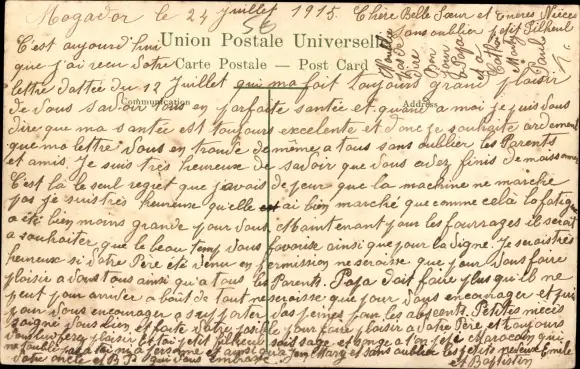 Mogador le 24 Juillet 1915. Chère Belle Sœur et Chères Nièces
sans oublier petit filheul
Paul
C'est aujourd'hui
Union Postale Universelle
que j'ai reçu votre
Carte Postale — Post Card
lettre dattée du 12 Juillet qui ma fait toujours grand plaisir
Communication
Address
de vous savoir tous en parfaite santée et quand a moi je puis vous
dire que ma santée est toujours excelente et donc je souhaite ardement
que ma lettre vous en trouve de même a tous sans oublier les Parents
et amis. Je suis très heureuse de savoir que vous avez finis de moissonner
C'est là le seul regret que j'avais de peur que la machine ne marche
pas je suis très heureuse qu'elle ai bien marché que comme cela la fatigue
a été bien moins grande pour vous. Maintenant pour les fourrages il serait
a souhaiter que le beau temp vous favorise ainsi que pour la vigne. Je serais très
heureux si votre Père été venu en permission ne seraisse que pour vous faire
plaisir a vous tous ainsi qu'a tous les Parents. Papa doit faire plus qu'il ne
peut pour arriver a bout de tout ne seraisse que pour vous encourager et puis
pour vous encourager a suporter des peines pour les absents. Petites nièces
soigné vous bien et faite votre possible pour faire plaisir a votre Père et toujours
vous lui ferez plaisir et toi petit filheul sois sage et songe a ton
ne personne et ainsi que ton et sans oublier les petits neveux Emile
votre oncle et qui vous embrasse
et Baptistin